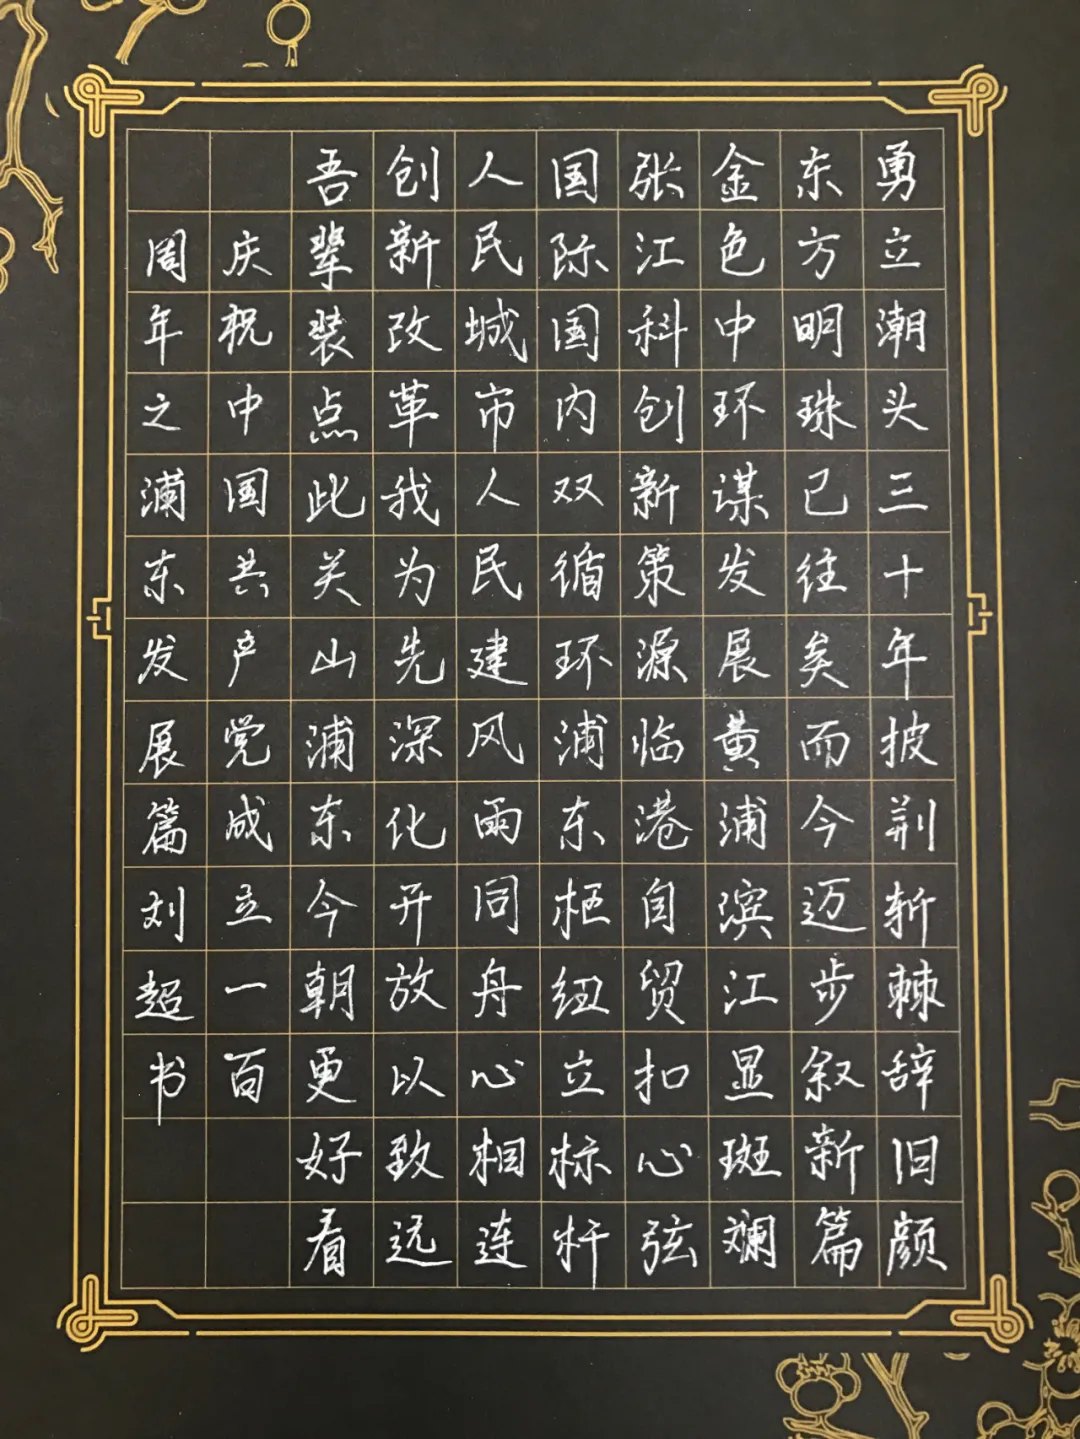 勇立潮头三十年披荆斩棘辞旧颜
东方明珠已往矣而今迈步叙新篇
金色中环谋发展黄浦滨江显斑斓
张江科创新策源临港自贸扣心弦
国际国内双循环浦东枢纽立标杆
人民城市人民建风雨同舟心相连
创新改革我为先深化开放以致远
吾辈装点此关山浦东今朝更好看
庆祝中国共产党成立一百
周年之浦东发展篇刘超书